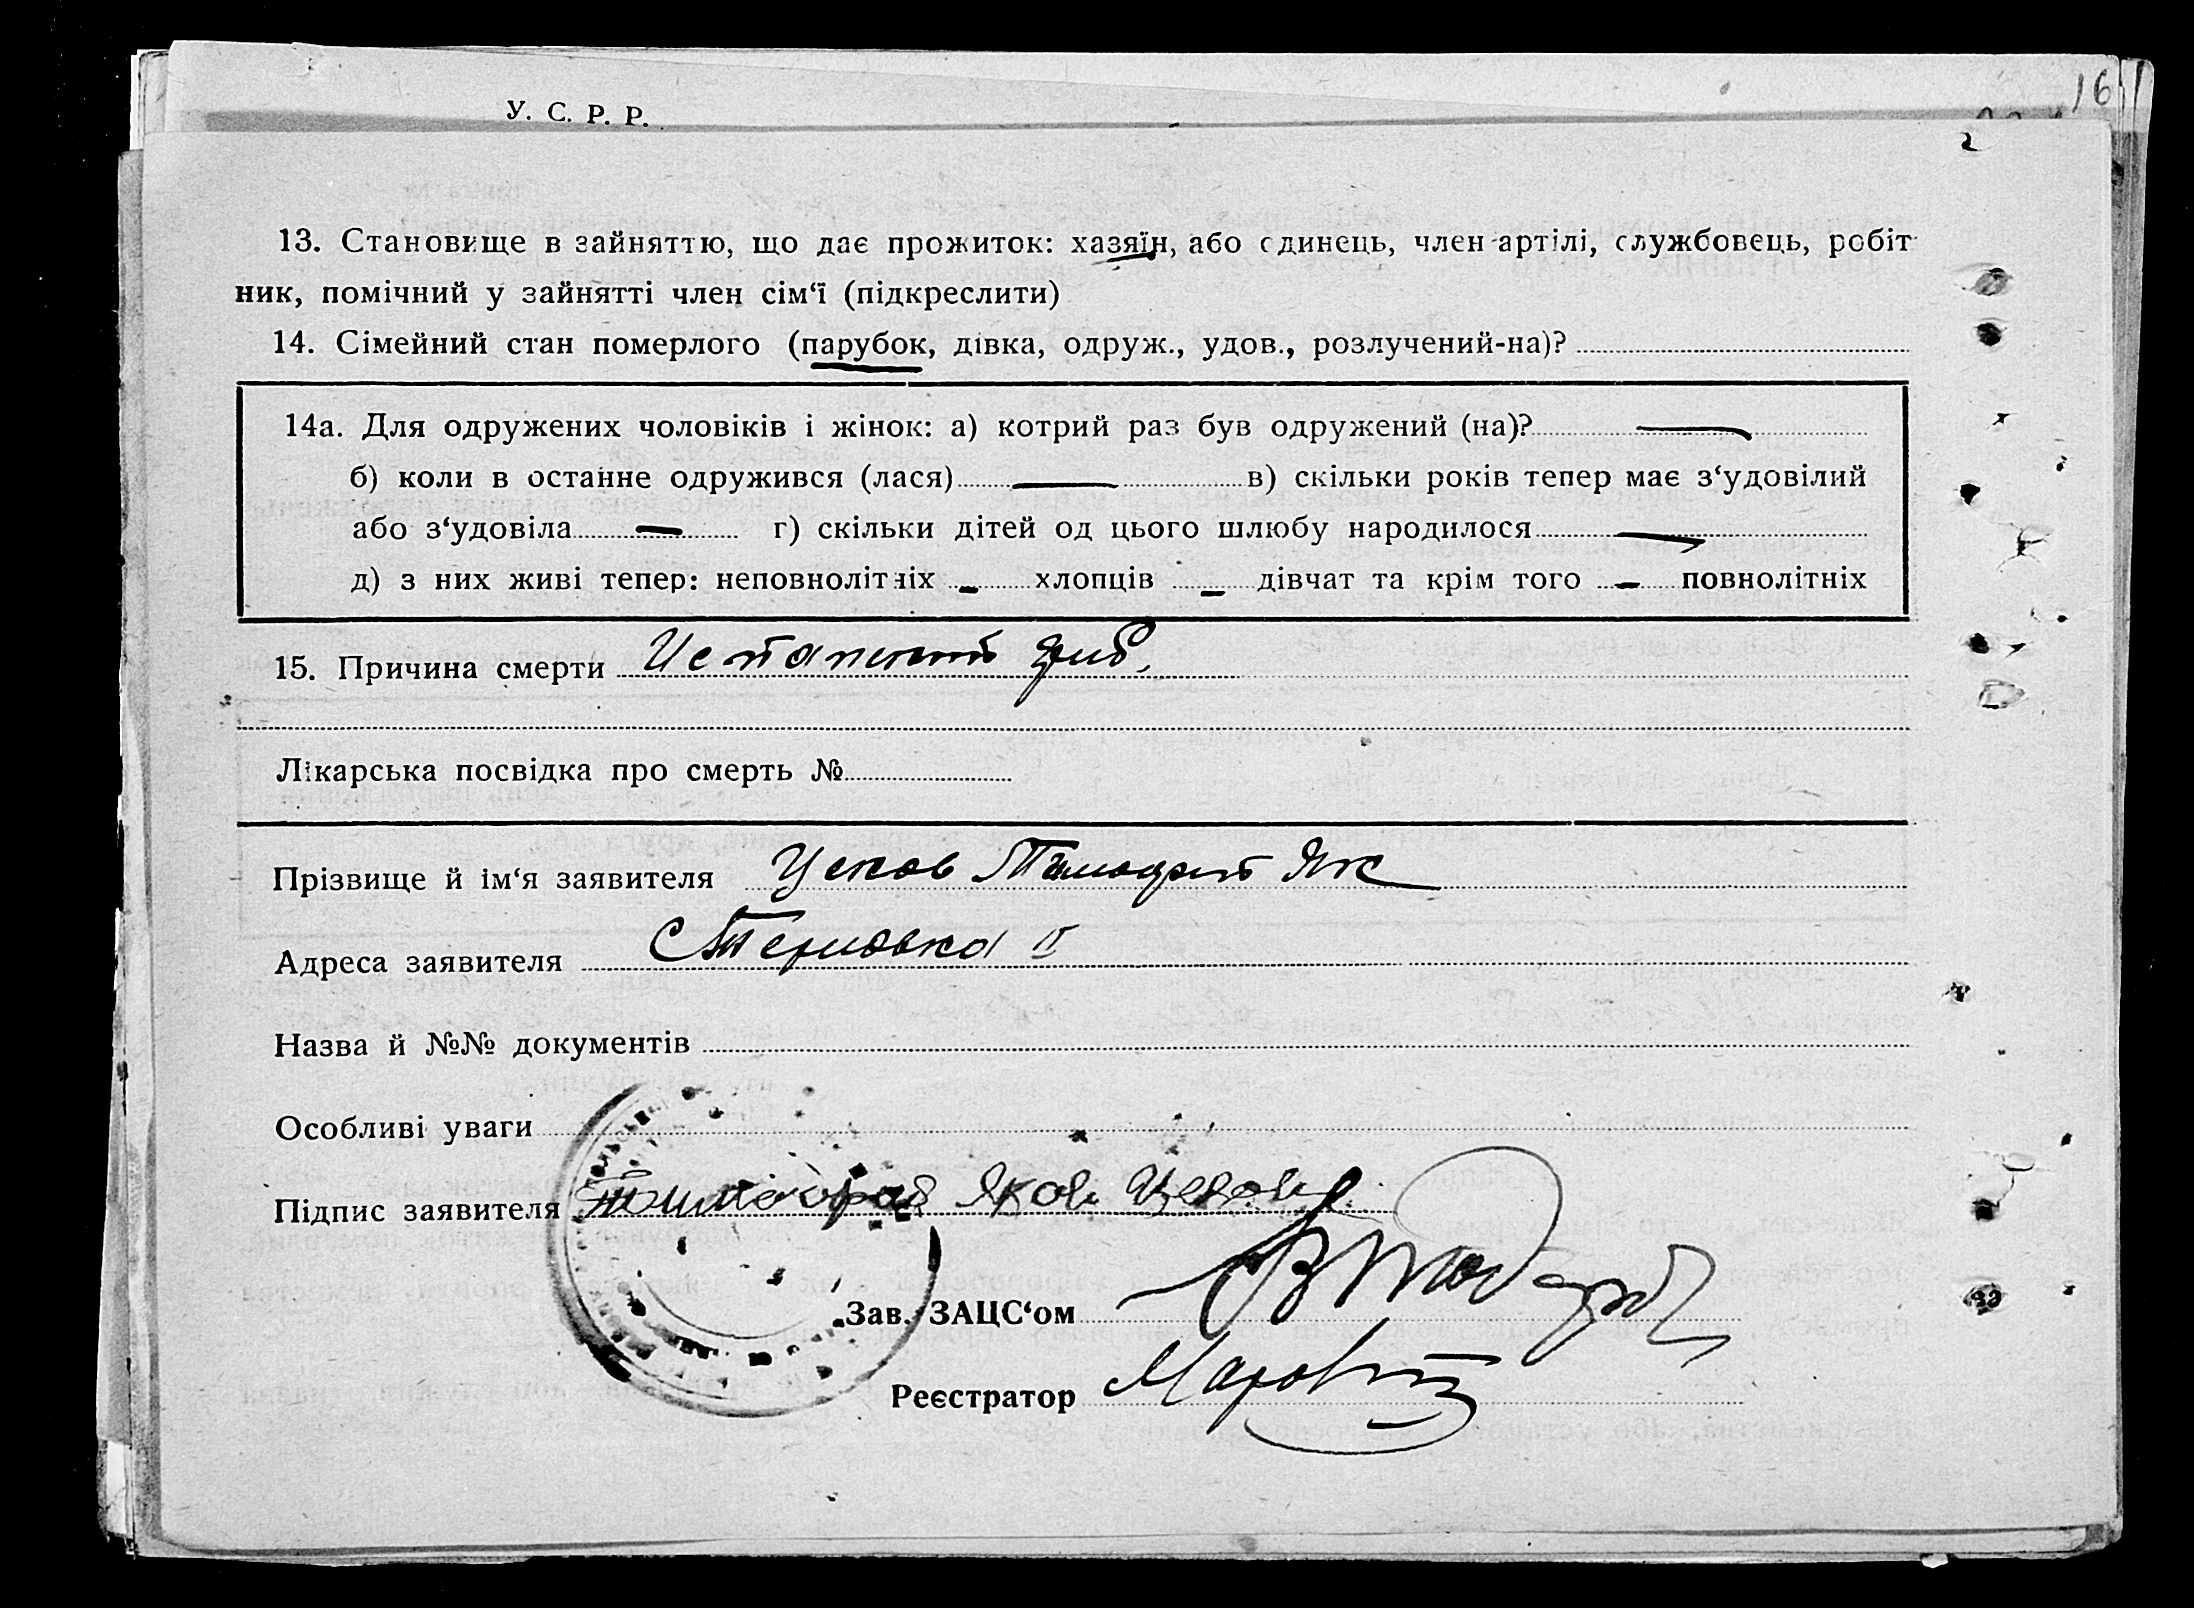 16
У. С. Р. Р.
13. Становище в зайняттю, що дає прожиток: хазяїн, або єдинець, член артілі, службовець, робіт
ник, помічний у зайнятті член сім‘ї (підкреслити)
14. Сімейний стан померлого (парубок, дівка, одруж., удов., розлучений-на)?
14а. Для одружених чоловіків і жінок: а) котрий раз був одружений (на)? —
б) коли в останне одружився (лася) — в) скільки років тепер має з‘удовілий
або з‘удовіла — г) скільки дітей од цього шлюбу народилося —
д) з них живі тепер: неповнолітніх - хлопців - дівчат та крім того - повнолітніх
15. Причина смерти
Лікарська посвідка про смерть №
Прізвище й ім‘я заявителя Усков Тимофей Як
Адреса заявителя II
Назва й №№ документів
Особливі уваги
Підпис заявителя Яков
Зав. ЗАЦС‘ом
Реєстратор